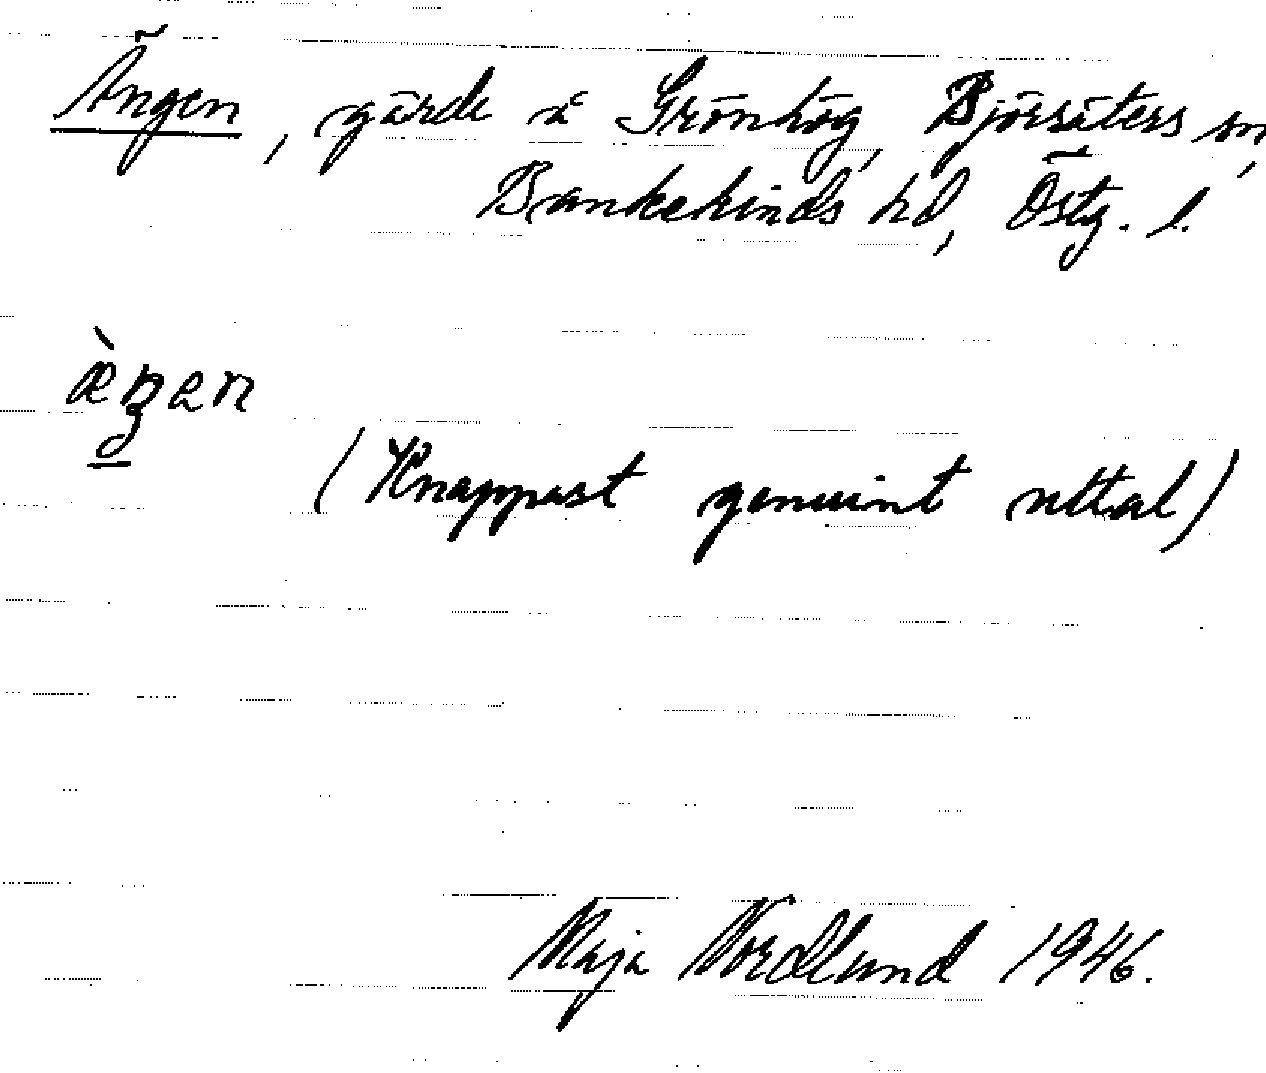 Ängen, gärde å Grönhög, Björsäters sn,
Bankekinds hd, Östg. l.
æ̀ŋen
(Knappast genuint uttal)
Maja Nordlund 1946.